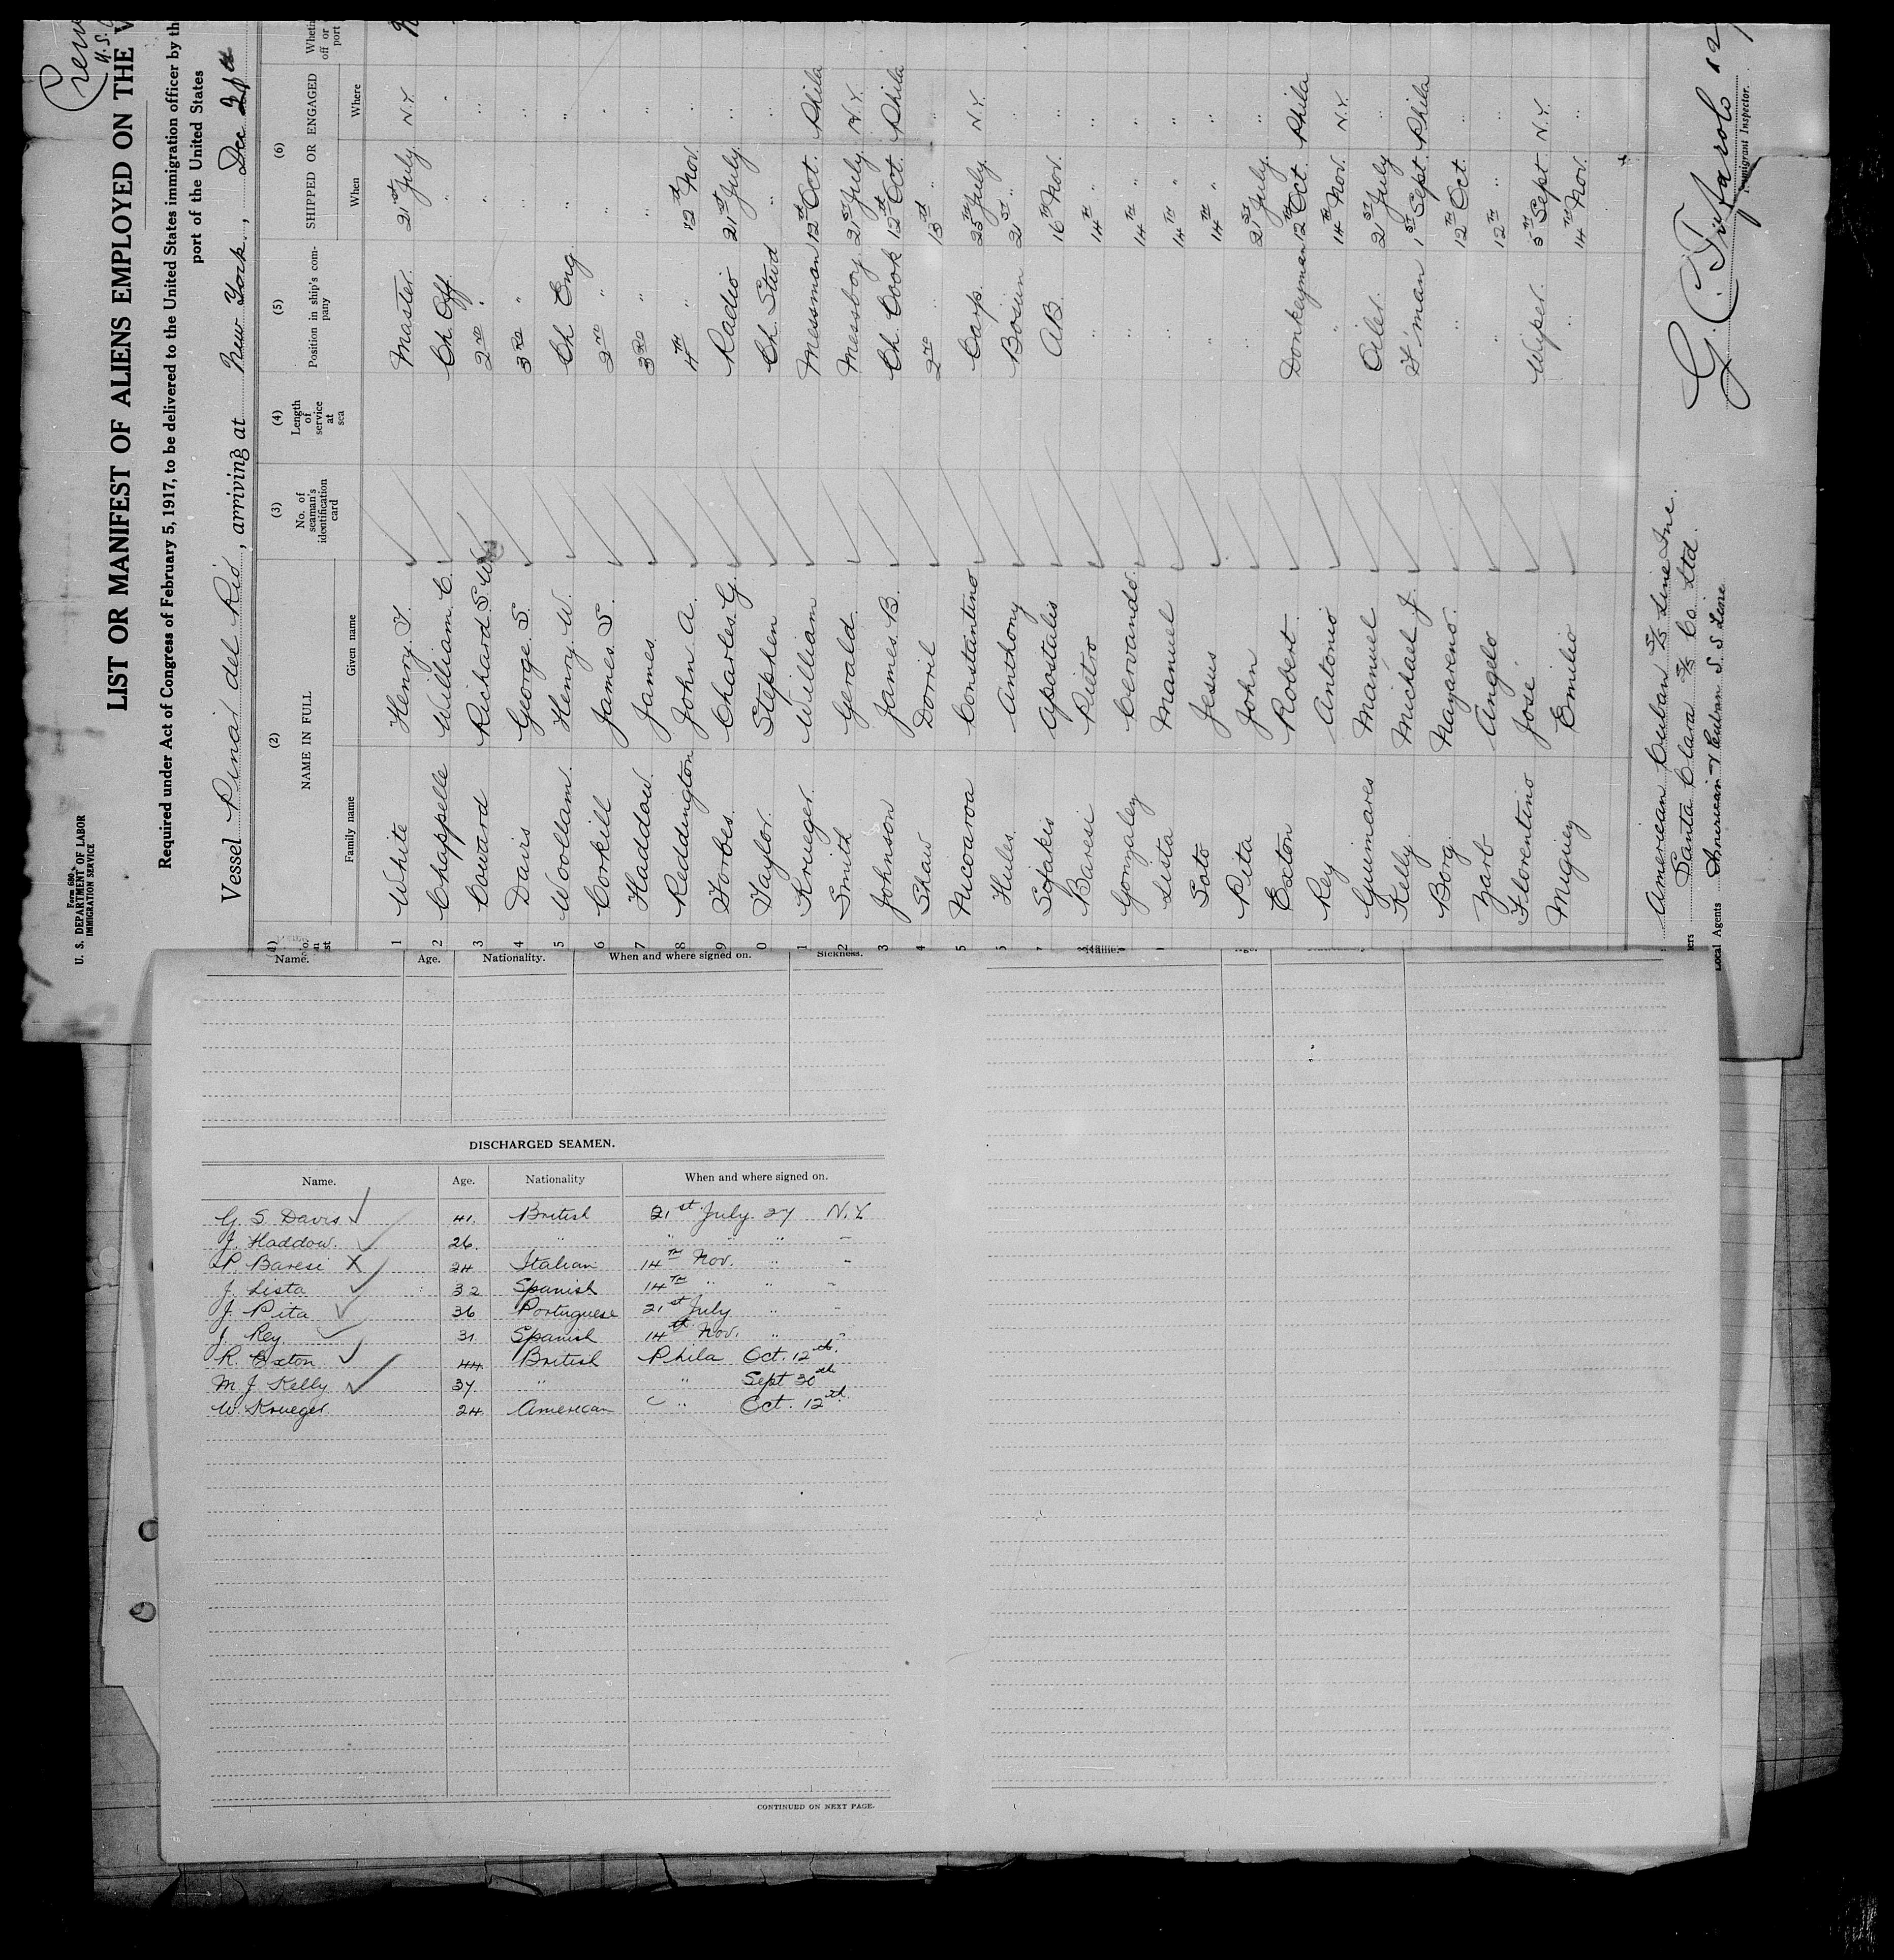 Form 680
U. S. DEPARTMENT OF LABOR
IMMIGRATION SERVICE
Crew
U.S.
LIST OR MANIFEST OF ALIENS EMPLOYED ON THE V
Required under Act of Congress of February 5, 1917, to be delivered to the United States immigration officer by th
port of the United States
Vessel Pinar del Rio, arriving at New York, Dec
(2) (3) (4) (5) (6)
NAME IN FULL No. of seaman's identification card Length of service at sea Position in ship's company SHIPPED OR ENGAGED Wheth off or port
Family name Given name When Where
1 White Henry T. Master 21st July N.Y.
2 Chappelle William C. Ch. Off. " "
3 Coward Richard S. W. 2nd " " "
4 Davis George S. 3rd " " "
5 Woollam Henry W. Ch Eng " "
6 Corkill James S. 2nd " " "
7 Haddow James 3rd " " "
8 Reddington John A. 4th " 12th Nov. "
9 Forbes Charles G. Radio 21st July "
0 Taylor Stephen Ch. Stwd " "
1 Krueger William Messman 12th Oct. Phila
2 Smith Gerald Messboy 21st July N.Y.
3 Johnson James B. Ch. Cook 12th Oct. Phila
4 Shaw Dorril 2nd " 13th " "
5 Nicoaroa Constantino Carp. 25th July N.Y.
Hules Anthony Bosun 21st " "
Sofakis Apostalis AB 16th Nov. "
Baresi Pietro " 14th " "
Gonzaley Cervando " 14th " "
Lista Manuel " 14th " "
Soto Jesus " 14th " "
Pita John " 21st July "
Exton Robert Donkeyman 12th Oct. Phila
Rey Antonio " 14th Nov. N.Y.
Guimares Manuel Oiler 21st July "
Kelly Michael J. F'man 1st Sept. Phila
Borg Nazareno " 12th Oct. "
Zarb Angelo " 12th " "
Florentino Jose Wiper 5th Sept N.Y.
Miguey Emilio " 14th Nov. "
American Cuban S/S Line Inc.
Santa Clara S/S Co Ltd.
Local Agents American & Cuban S S Line
G. C. Tufarolo 12
Immigrant Inspector.
Name. Age. Nationality. When and where signed on. Sickness.
Name.
DISCHARGED SEAMEN.
Name. Age. Nationality When and where signed on.
G. S. Davis 41. British 21st July. 27 N.Y.
J. Haddow. 26. " " " " "
P. Baresi X 24 Italian 14th Nov. " "
J. Lista 32 Spanish 14th " " "
J. Pita 36 Portuguese 21st July " "
J. Rey 31 Spanish 14th Nov. " "
R. Exton 44 British Phila Oct. 12th.
M J Kelly 37. " " Sept 30th
W. Krueger 24 American " Oct. 12th.
CONTINUED ON NEXT PAGE.